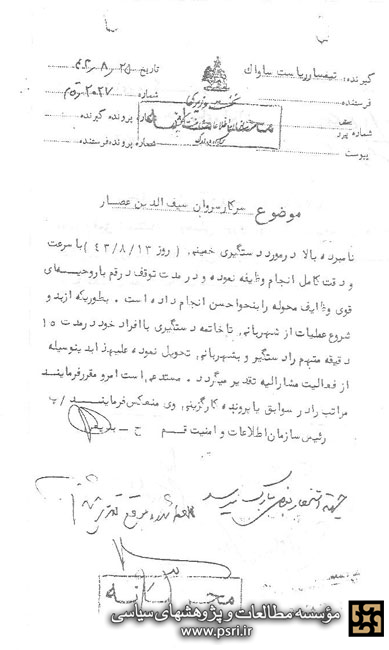 گیرنده: تیمسار ریاست ساواک
تاریخ
فرستنده
شماره
نخست وزیری
شماره پیرو
شماره پرونده گیرنده
پیوست
شماره پرونده فرستنده
موضوع سرکار سروان سیف الدین عصار
نامبرده بالا درمورد دستگیری خمینی (روز ۴۳/۸/۱۳) باسرعت
ودقت کامل انجام وظیفه نموده و در مدت توقف درقم باروحیه‌ای
قوی وظایف محوله را بنحواحسن انجام داده است . بطوریکه ازبدو
شروع عملیات از شهربانی تاخاتمه دستگیری باافراد خود درمدت ۱۵
دقیقه متهم را دستگیر و بشهربانی تحویل نموده علیهذا بدینوسیله
از فعالیت مشارالیه تقدیر میگردد . مستدعی است امرو مقررفرمایند
مراتب را در سوابق یا پرونده کارگزینی وی منعکس فرمایند /پ
رئیس سازمان اطلاعات و امنیت قم ح - بدیعی
محرمانه
مؤسسه مطالعات و پژوهشهای سیاسی
www.psri.ir